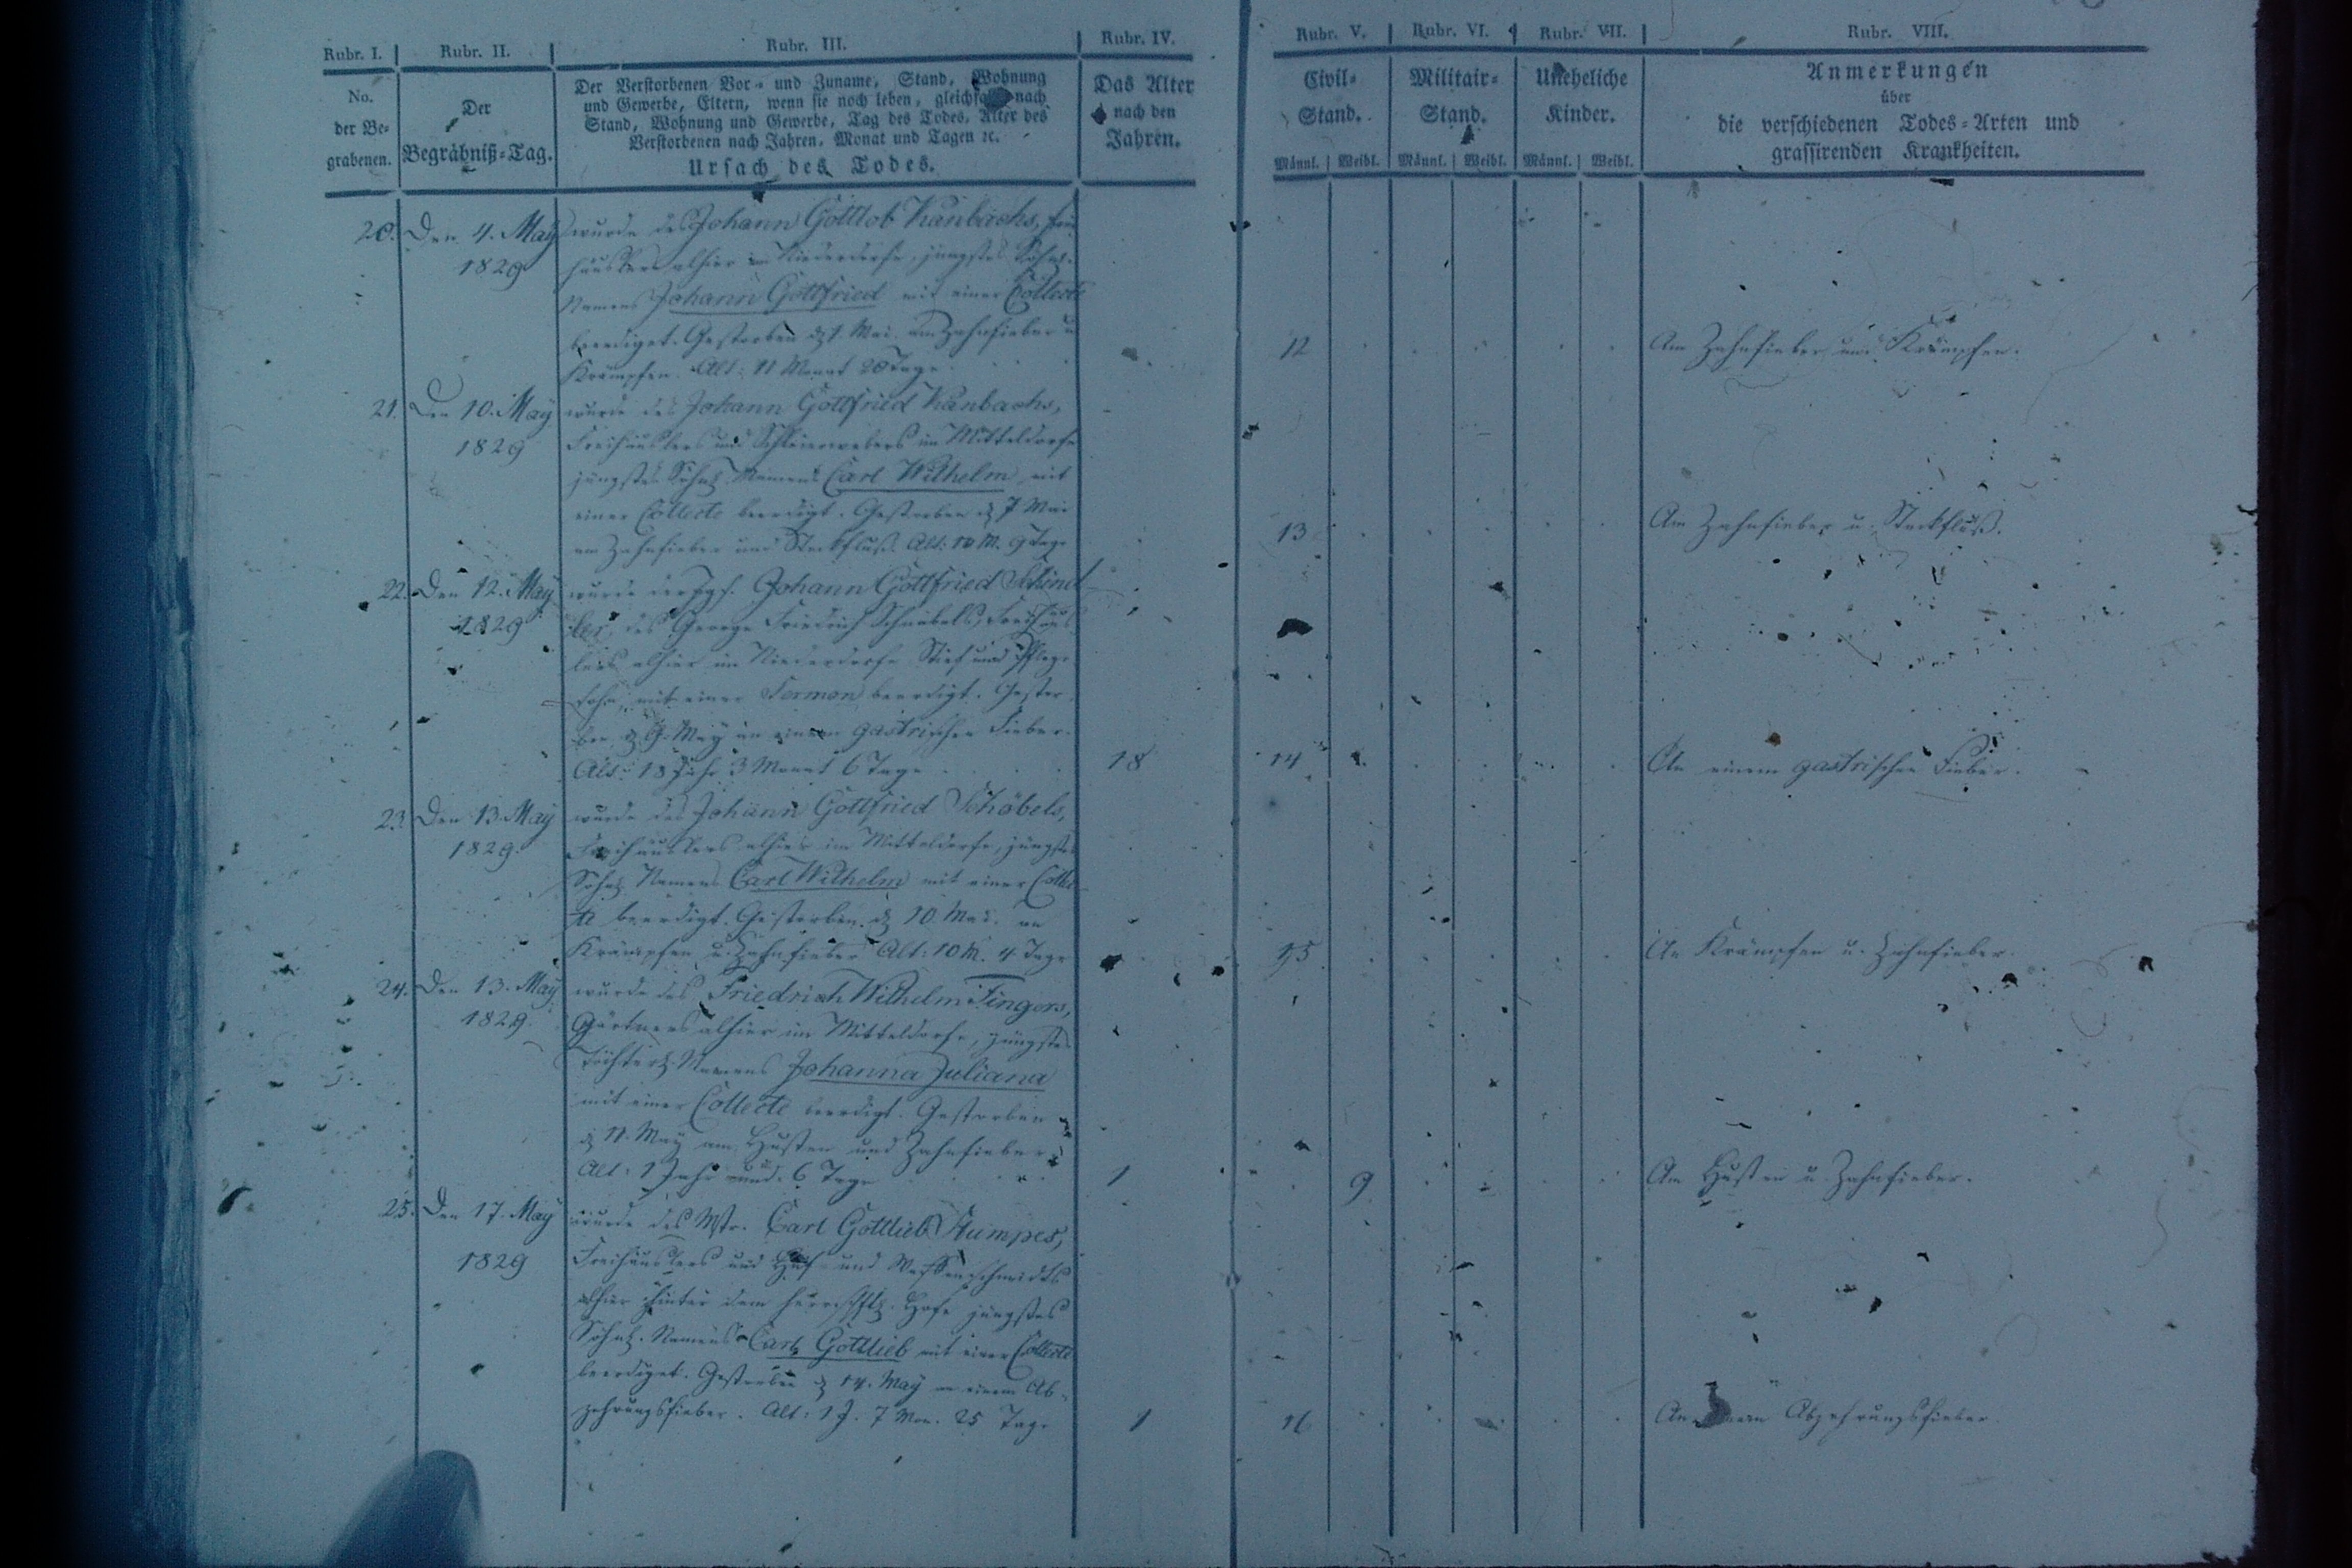 Rubr. I. Rubr. II. Rubr. III. Rubr. IV. Rubr. V. Rubr. VI. Rubr. VII. Rubr. VIII.
No.
der Be-
grabenen.
Der
Begräbniß-Tag.
Der Verstorbenen Vor- und Zuname, Stand, Wohnung
und Gewerbe, Eltern, wenn sie noch leben, gleichfalls nach
Stand, Wohnung und Gewerbe, Tag des Todes, Alter des
Verstorbenen nach Jahren, Monat und Tagen ꝛc.
Ursach des Todes.
Das Alter
nach den
Jahren.
Civil-
Stand.
Männl. Weibl.
Militair-
Stand.
Männl. Weibl.
Uneheliche
Kinder.
Männl. Weibl.
Anmerkungen
über
die verschiedenen Todes-Arten und
grassirenden Krankheiten.
20. Den 4. May
1829
wurde des Johann Gottlob Kanbachs, Frei
häuslers alhier im Niederdorfe, jüngstes Söhnl.
Namens Johann Gottfried mit einer Collecte
beerdiget. Gestorben d. 1. Mai. am Zahnfieber u
Krämpfen. Alt: 11 Monat 20 Tage.
12
Am Zahnfieber und Krämpfen.
21. Den 10. May
1829
wurde des Johann Gottfried Kanbachs,
Freihäuslers und Schleierwebers im Mitteldorfe
jüngstes Söhnl. Namens Carl Wilhelm, mit
einer Collecte beerdigt. Gestorben d. 7 Mai
am Zahnfieber und Steckfluß. Alt: 10 M. 9 Tage
13
Am Zahnfieber u. Steckfluß.
22. Den 12. May
1829
wurde der Jgs. Johann Gottfried Schind
ler, des George Friedrich Schnabels, Freihäus
lers alhier im Niederdorfe Stief und Pflege
sohn, mit einer Sermon beerdigt. Gestor
ben d. 9. May an einem gastrischen Fieber.
Alt: 18 Jahr 3 Monat 6 Tage
18
14
An einem gastrischen Fieber.
23. Den 13. May
1829.
wurde des Johann Gottfried Schöbels,
Freihäuslers alhier im Mitteldorfe, jüngstes
Söhnl. Namens Carl Wilhelm mit einer Collec
te beerdigt. Gestorben d. 10. Mai. an
Krämpfen u. Zahnfieber Alt: 10 M. 4 Tage
15
An Krämpfen u. Zahnfieber.
24. Den 13. May
1829.
wurde des Friedrich Wilhelm Fingers,
Gärtners alhier im Mitteldorfe, jüngstes
Töchterl. Namens Johanna Juliana
mit einer Collecte beerdigt. Gestorben
d. 11. May am Husten und Zahnfieber
Alt: 1 Jahr und 6 Tage
1
9
Am Husten u. Zahnfieber.
25. Den 17. May
1829
wurde des Mstr. Carl Gottlieb Stumpes,
Freihäuslers und Huf- und Waffenschmidts
alhier hinter dem herrschftl. Hofe jüngstes
Söhnl. Namens Carl Gottlieb mit einer Collecte
beerdiget. Gestorben d. 14. May an einem Ab-
zehrungsfieber. Alt: 1 J. 7 Mon. 25 Tage
1
16
An einem Abzehrungsfieber